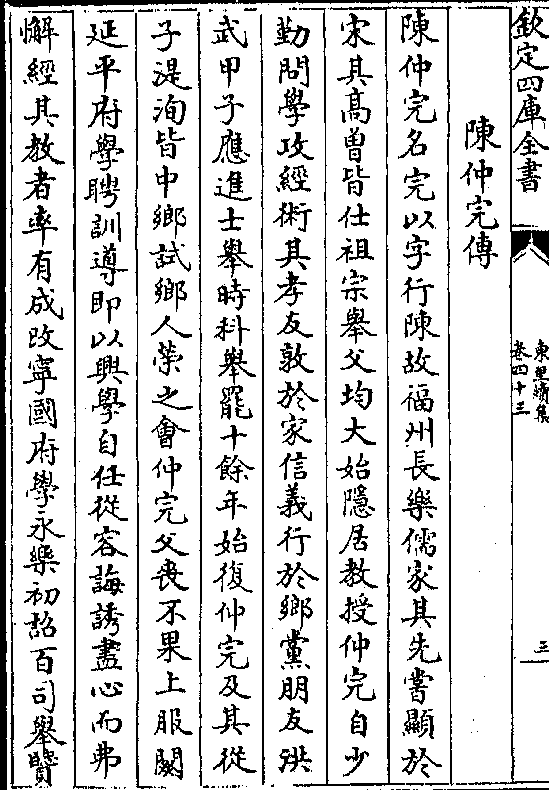 欽定四庫全書
東里續集
卷四十三
三
陳仲完傳
陳仲完名完以字行陳故福州長樂儒家其先嘗顯於
宋其高曾皆仕祖宗舉父均大始隱居教授仲完自少
勤問學攻經術其孝友敦於家信義行於鄉黨朋友洪
武甲子應進士舉時科舉罷十餘年始復仲完及其從
子湜洵皆中鄉試鄉人榮之會仲完父喪不果上服闋
延平府學聘訓導即以興學自任從容誨誘盡心而弗
懈經其教者率有成改寧國府學永樂初詔百司舉賢